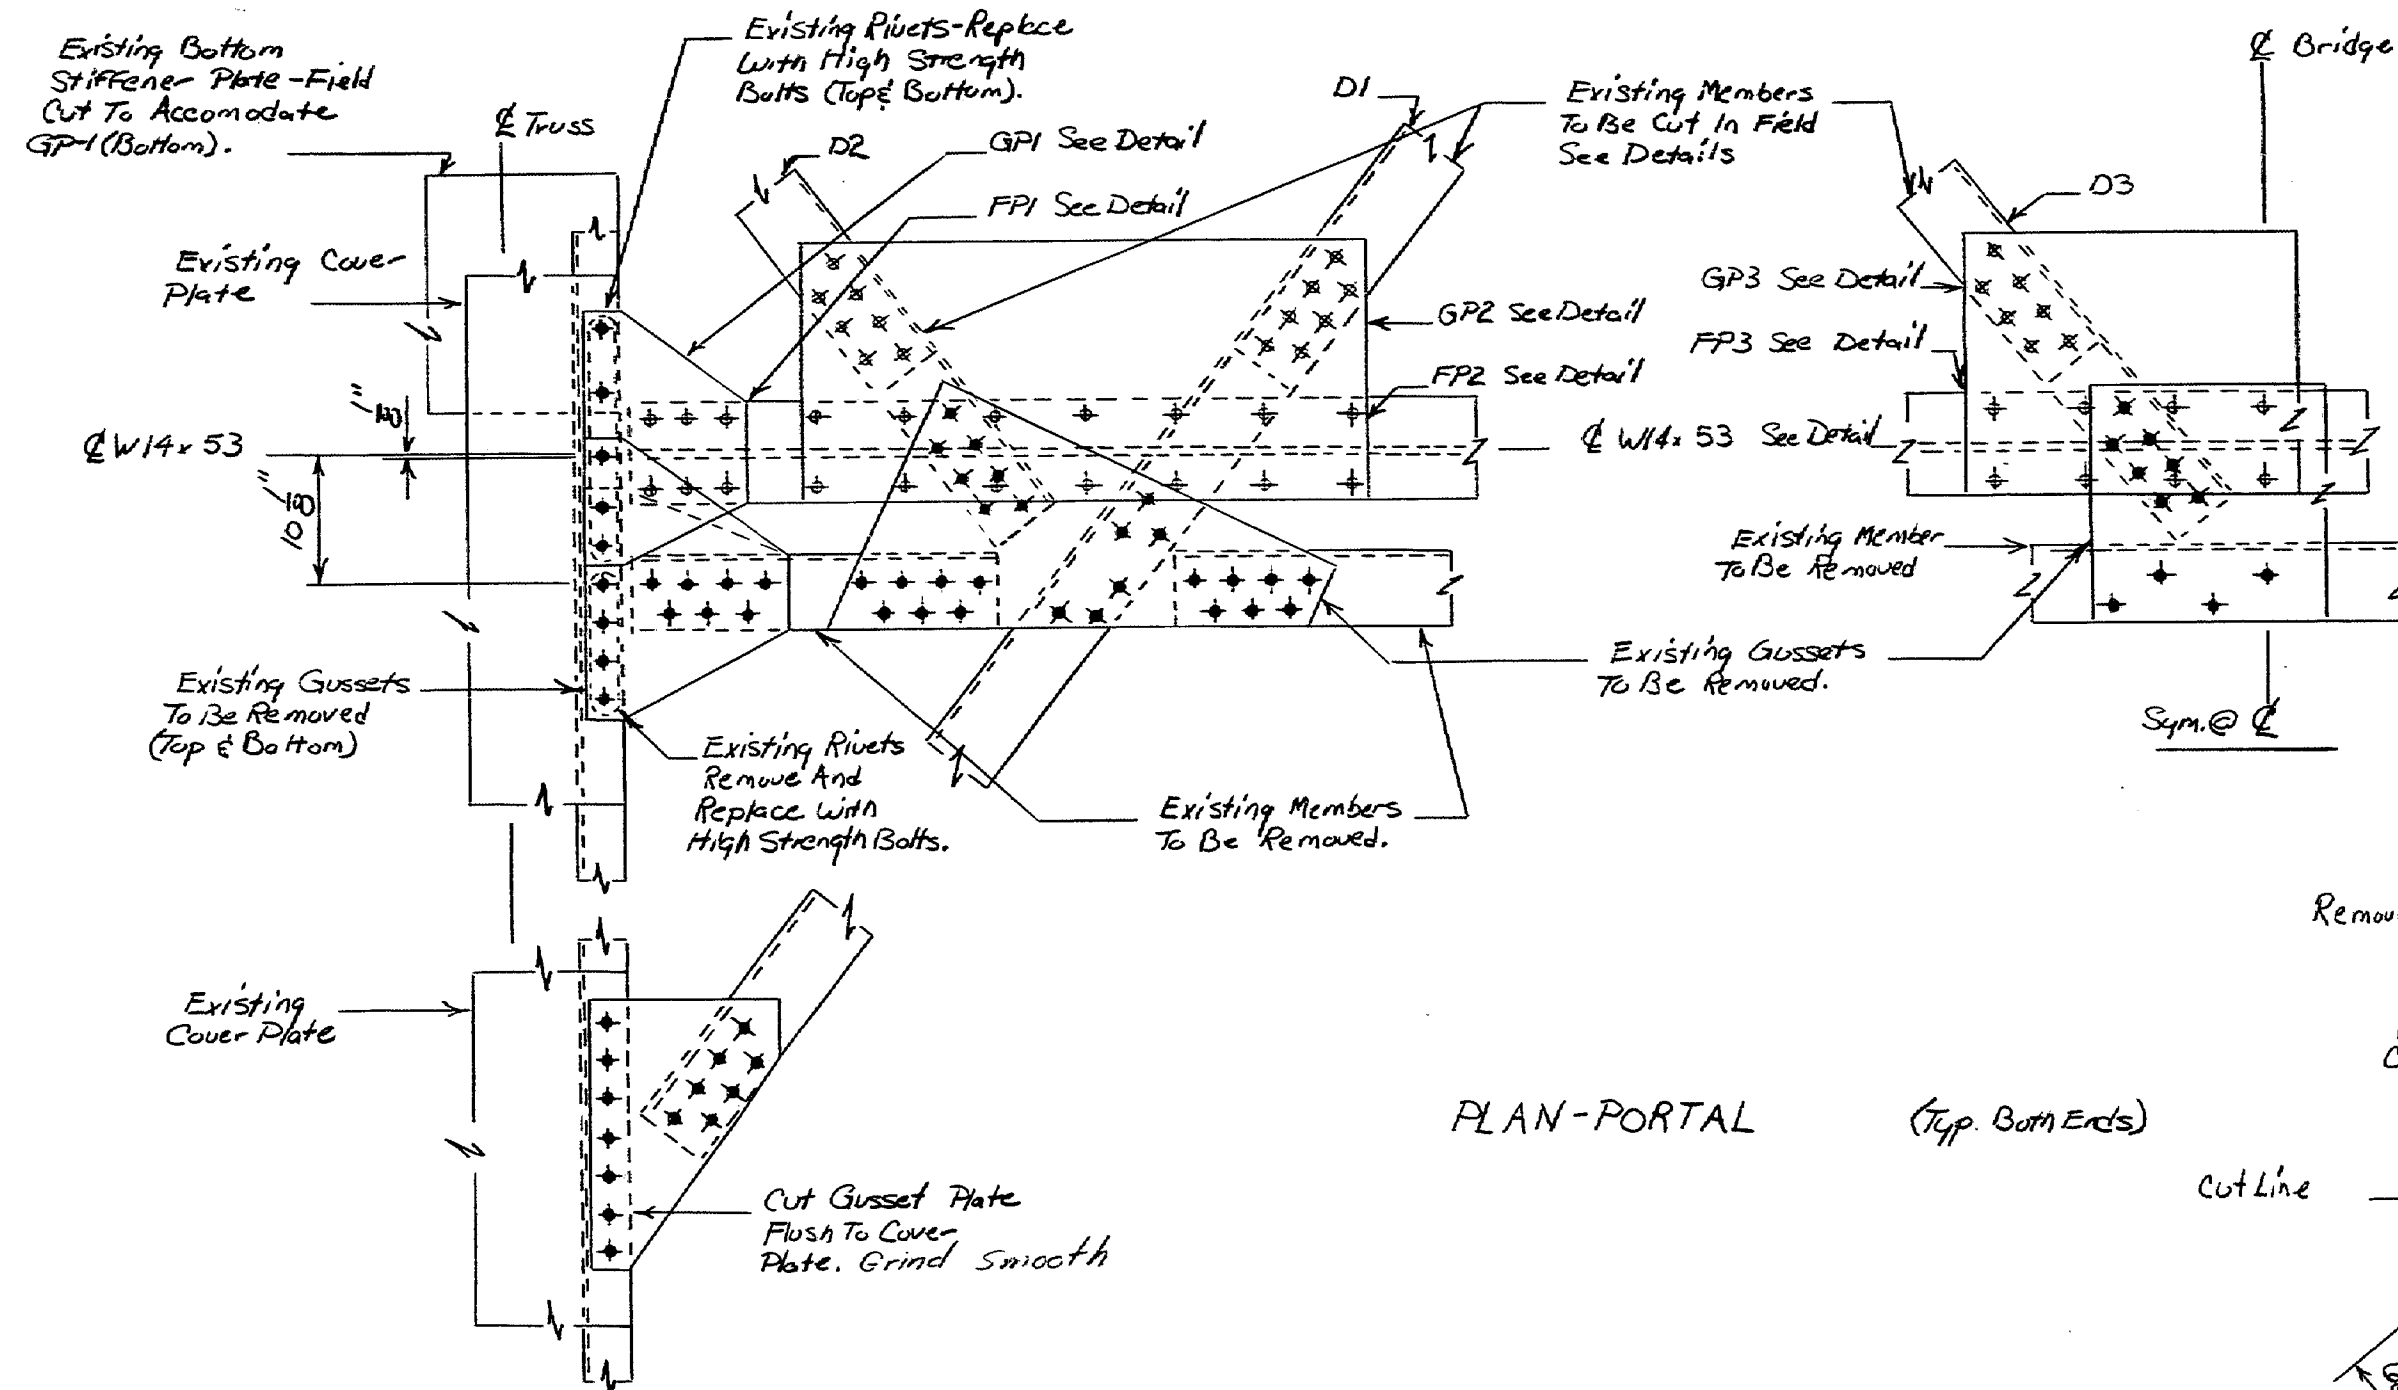 Existing Bottom
Stiffener Plate-Field
Cut To Accomodate
GP-1 (Bottom).
℄ Truss
Existing Rivets-Replace
With High Strength
Bolts (Top & Bottom).
D2
GP1 See Detail
FP1 See Detail
D1
Existing Members
To Be Cut In Field
See Details
℄ Bridge
D3
Existing Cover
Plate
GP2 See Detail
FP2 See Detail
GP3 See Detail
FP3 See Detail
℄ W14x53
1/8"
10 1/8"
℄ W14x53 See Detail
Existing Member
To Be Removed
Existing Gussets
To Be Removed
(Top & Bottom)
Existing Gussets
To Be Removed.
Sym.@ ℄
Existing Rivets
Remove And
Replace With
High Strength Bolts.
Existing Members
To Be Removed.
Remov
Existing
Cover Plate
C
PLAN-PORTAL (Typ. Both Ends)
Cut Line
Cut Gusset Plate
Flush To Cover
Plate. Grind Smooth